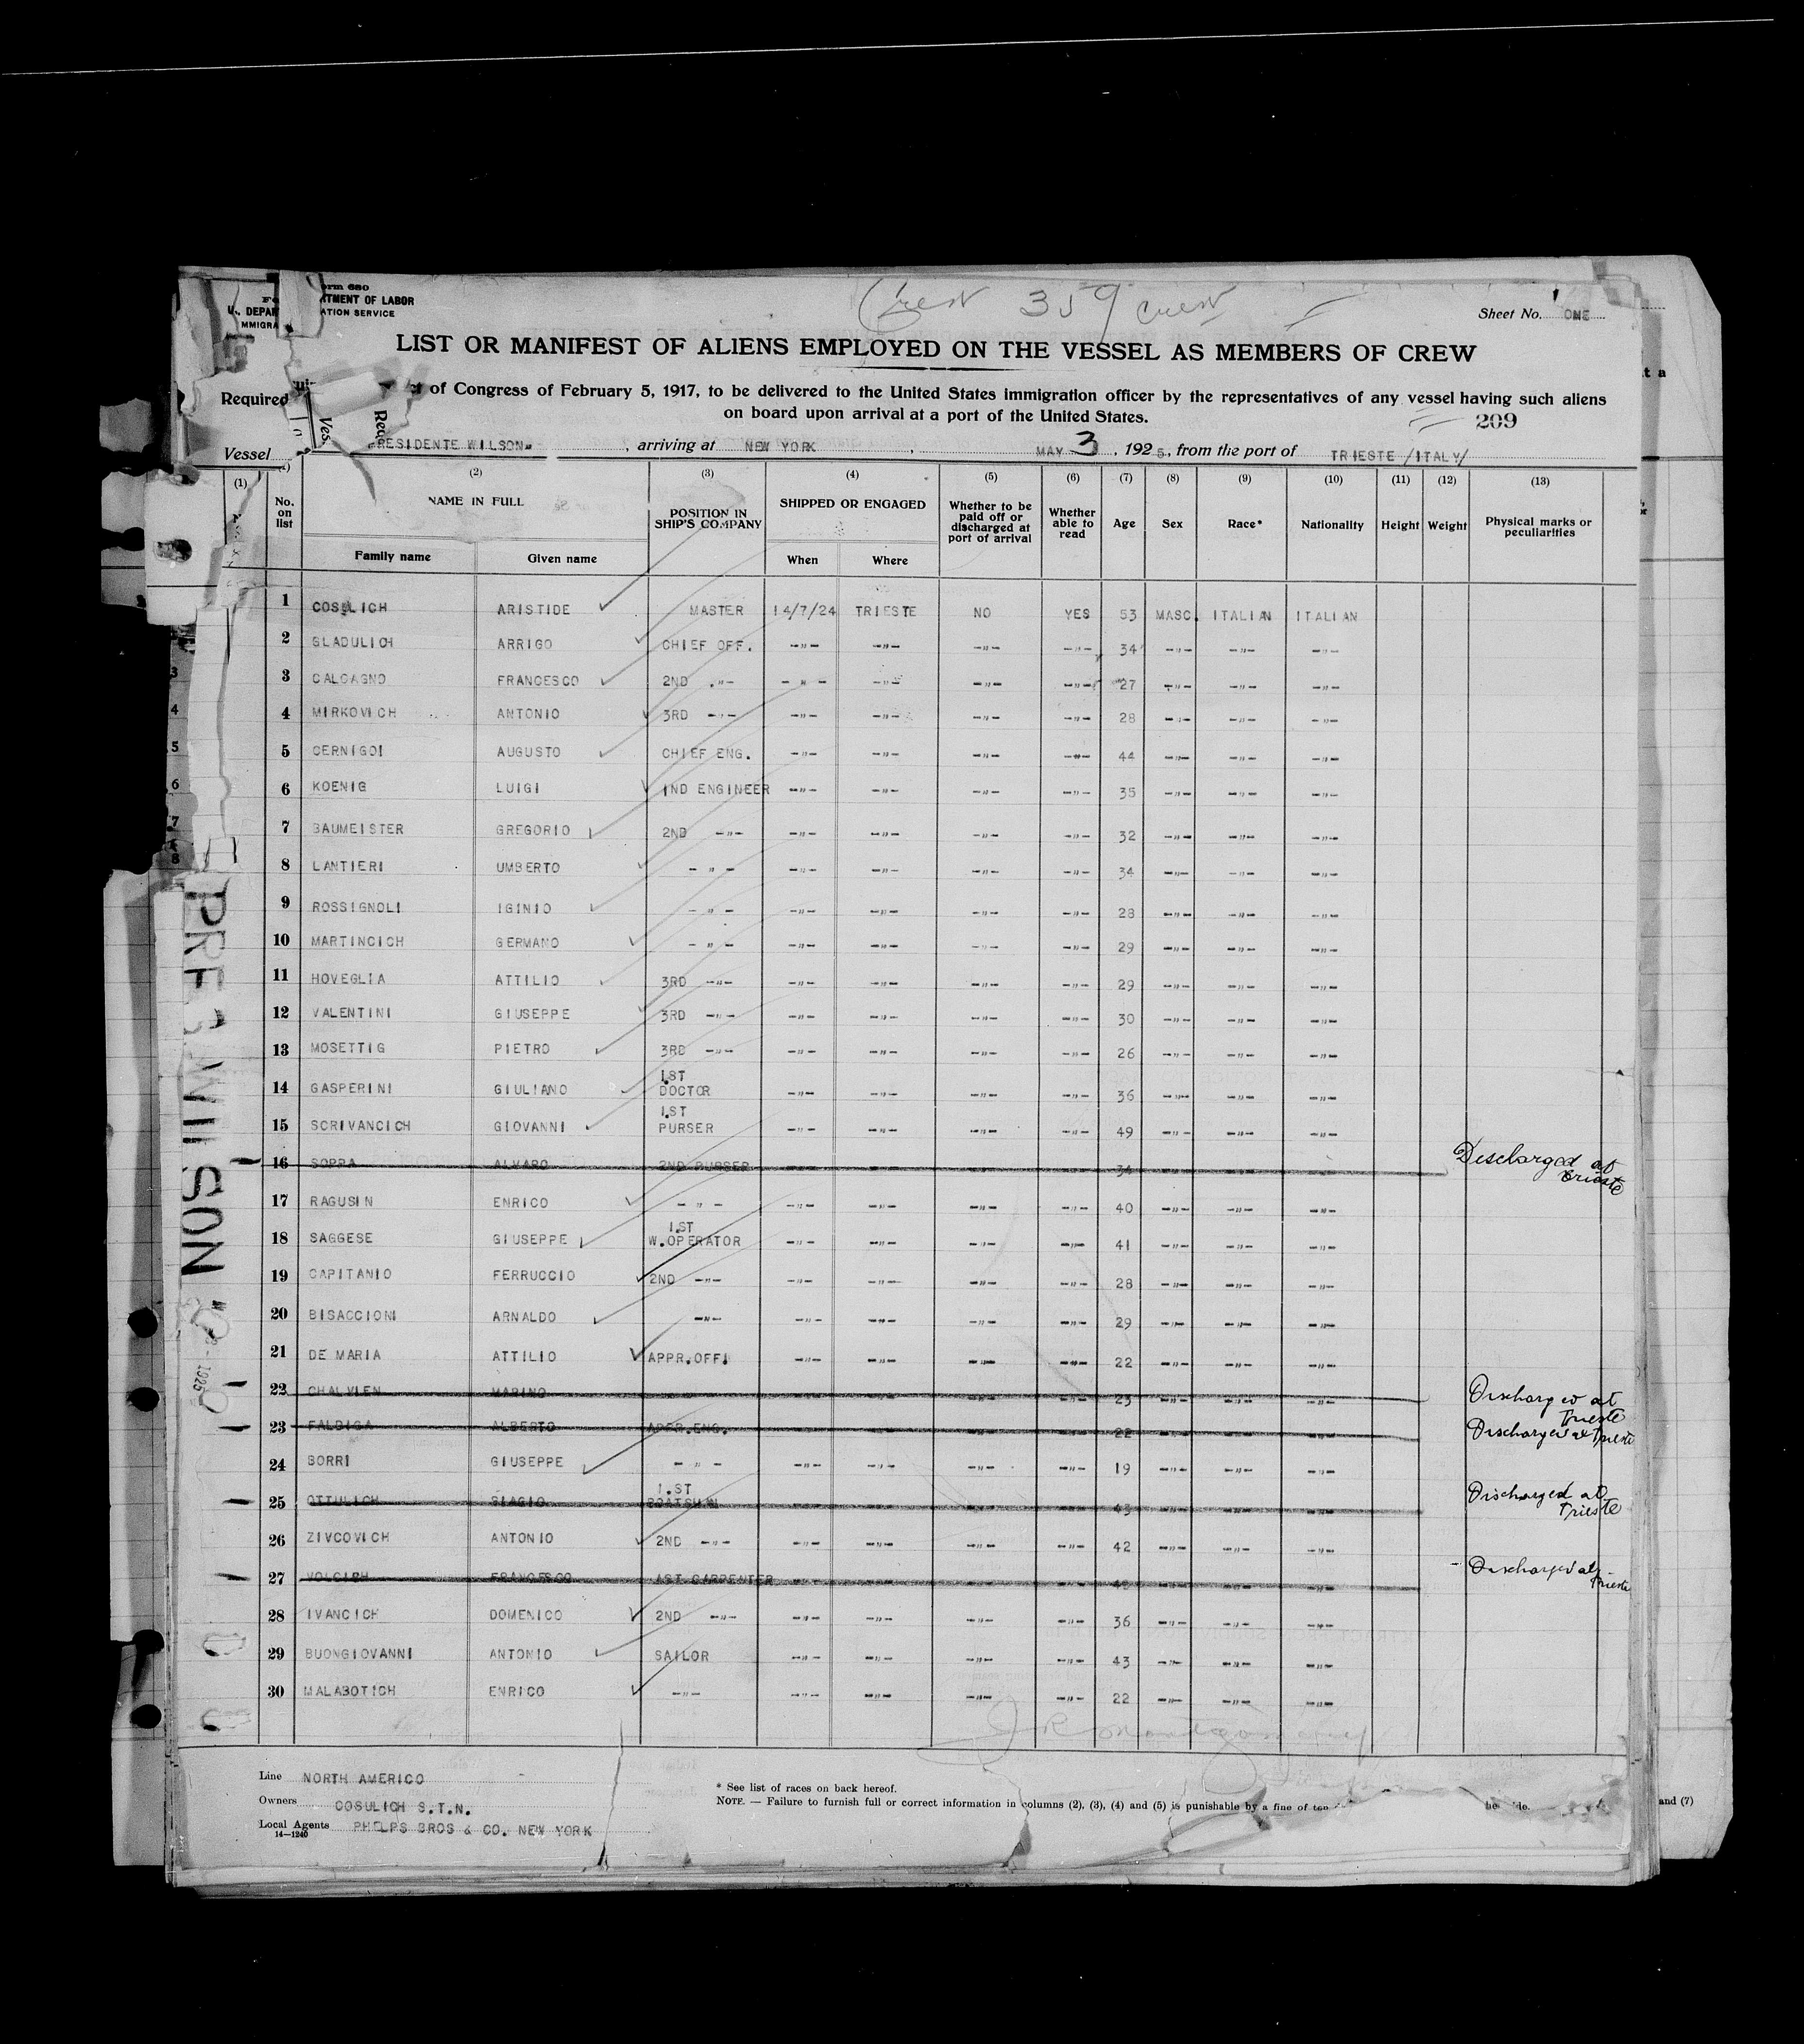 Form 680
U. S. DEPARTMENT OF LABOR
IMMIGRATION SERVICE
359
Sheet No. ONE
LIST OR MANIFEST OF ALIENS EMPLOYED ON THE VESSEL AS MEMBERS OF CREW
Required of Congress of February 5, 1917, to be delivered to the United States immigration officer by the representatives of any vessel having such aliens
on board upon arrival at a port of the United States.
209
Vessel RESIDENTE WILSON" , arriving at NEW YORK , MAY 3 , 1925, from the port of TRIESTE /ITALY/
(1) (2) (3) (4) (5) (6) (7) (8) (9) (10) (11) (12) (13)
No. on list NAME IN FULL POSITION IN SHIP'S COMPANY SHIPPED OR ENGAGED Whether to be paid off or discharged at port of arrival Whether able to read Age Sex Race* Nationality Height Weight Physical marks or peculiarities
Family name Given name When Where
1 COSULICH ARISTIDE MASTER 14/7/24 TRIESTE NO YES 53 MASC. ITALIAN ITALIAN
2 GLADULICH ARRIGO CHIEF OFF. -"- -"- -"- -"- 34 -"- -"- -"-
3 CALCAGNO FRANCESCO 2ND -"- -"- -"- -"- -"- 27 -"- -"- -"-
4 MIRKOVICH ANTONIO 3RD -"- -"- -"- -"- -"- 28 -"- -"- -"-
5 CERNIGOI AUGUSTO CHIEF ENG. -"- -"- -"- -"- 44 -"- -"- -"-
6 KOENIG LUIGI IND ENGINEER -"- -"- -"- -"- 35 -"- -"- -"-
7 BAUMEISTER GREGORIO 2ND -"- -"- -"- -"- -"- 32 -"- -"- -"-
8 LANTIERI UMBERTO -"- -"- -"- -"- -"- 34 -"- -"- -"-
9 ROSSIGNOLI IGINIO -"- -"- -"- -"- -"- 28 -"- -"- -"-
10 MARTINCICH GERMANO -"- -"- -"- -"- -"- 29 -"- -"- -"-
11 HOVEGLIA ATTILIO 3RD -"- -"- -"- -"- -"- 29 -"- -"- -"-
12 VALENTINI GIUSEPPE 3RD -"- -"- -"- -"- -"- 30 -"- -"- -"-
13 MOSETTIG PIETRO 3RD -"- -"- -"- -"- -"- 26 -"- -"- -"-
14 GASPERINI GIULIANO 1.ST DOCTOR -"- -"- -"- -"- 36 -"- -"- -"-
15 SCRIVANCICH GIOVANNI 1.ST PURSER -"- -"- -"- -"- 49 -"- -"- -"-
16 SOPPA ALVARO 2ND PURSER -"- -"- -"- -"- 34 -"- -"- -"- Discharged at Trieste
17 RAGUSIN ENRICO -"- -"- -"- -"- -"- 40 -"- -"- -"-
18 SAGGESE GIUSEPPE 1.ST W.OPERATOR -"- -"- -"- -"- 41 -"- -"- -"-
19 CAPITANIO FERRUCCIO 2ND -"- -"- -"- -"- -"- 28 -"- -"- -"-
20 BISACCIONI ARNALDO -"- -"- -"- -"- -"- 29 -"- -"- -"-
21 DE MARIA ATTILIO APPR.OFFI -"- -"- -"- -"- 22 -"- -"- -"-
22 CHALVIEN MARINO -"- -"- -"- -"- 23 -"- -"- -"- Discharged at Trieste
23 FALDIGA ALBERTO APPR.ENG. -"- -"- -"- -"- 22 -"- -"- -"- Discharged at Trieste
24 BORRI GIUSEPPE -"- -"- -"- -"- -"- 19 -"- -"- -"-
25 OTTULICH BIAGIO 1.ST BOATSMAN -"- -"- -"- -"- 43 -"- -"- -"- Discharged at Trieste
26 ZIVCOVICH ANTONIO 2ND -"- -"- -"- -"- -"- 42 -"- -"- -"-
27 VOLCICH FRANCESCO 1ST CARPENTER -"- -"- -"- -"- -"- -"- -"- Discharged at Trieste
28 IVANCICH DOMENICO 2ND -"- -"- -"- -"- -"- 36 -"- -"- -"-
29 BUONGIOVANNI ANTONIO SAILOR -"- -"- -"- -"- 43 -"- -"- -"-
30 MALABOTICH ENRICO -"- -"- -"- -"- -"- 22 -"- -"- -"-
Line NORTH AMERICO
Owners COSULICH S.T.N.
Local Agents PHELPS BROS & CO. NEW YORK
14—1240
* See list of races on back hereof.
NOTE. — Failure to furnish full or correct information in columns (2), (3), (4) and (5) is punishable by a fine of ten
and (7)
PRES WILSON "